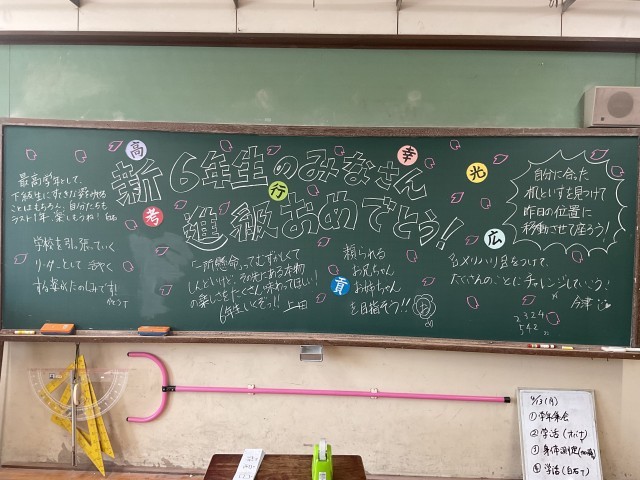 新6年生のみなさん
進級おめでとう！
高
考
行
幸
光
広
貢
最高学年として、
下級生にすてきな姿をみせる
ことはもちろん、自分たちも
ラスト1年、楽しもうね！
学校を引、張っていく
リーダーとして
するの楽しみです!!
「一所懸命」ってむずかしくて
しんどいけど、その先にある本物
の楽しさをたくさん味わってほしい！
6年生いくぞっ!! 上田
頼られる
お兄ちゃん
お姉ちゃん
を目指そう!!
メリハリをつけて、
たくさんのことにチャレンジしていこう！
今津
自分に合った
机といすを見つけて
昨日の位置に
移動させて座ろう！
2324
542
4/13(月)
①学年集会
②学活
③身体測定
④学活